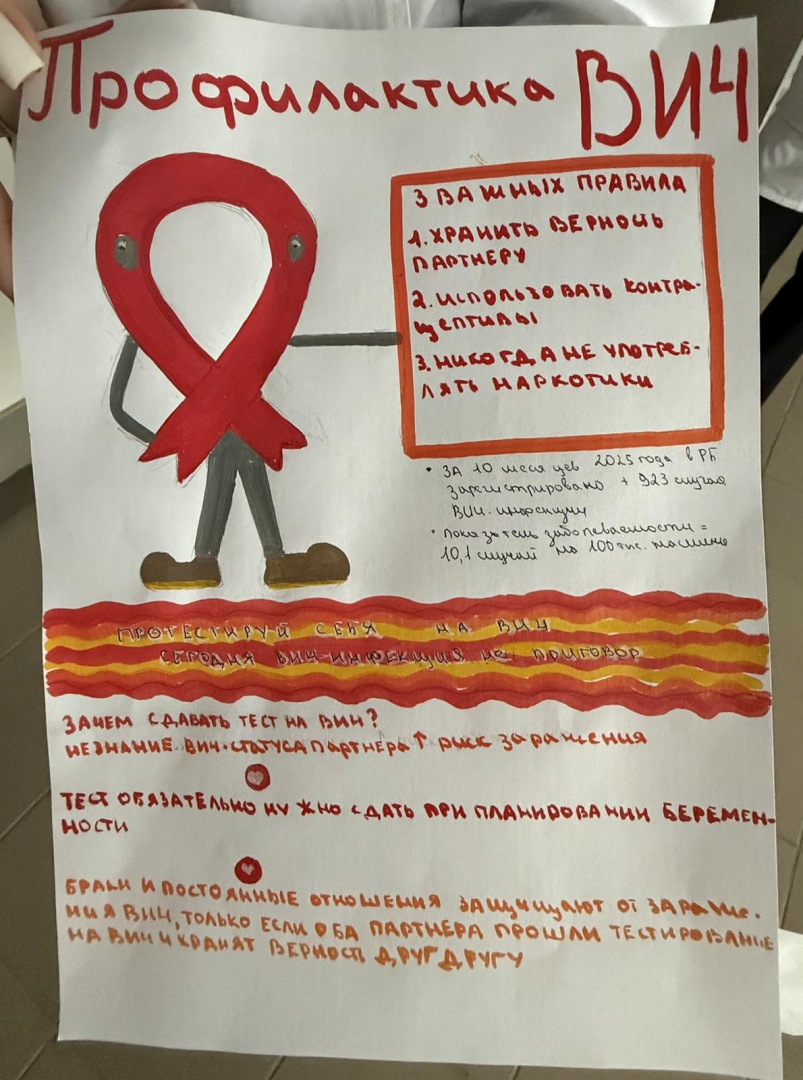 Профилактика ВИЧ
3 ВАЖНЫХ ПРАВИЛА
1. ХРАНИТЬ ВЕРНОСТЬ
ПАРТНЕРУ
2. ИСПОЛЬЗОВАТЬ КОНТРА-
ЦЕПТИВЫ
3. НИКОГДА НЕ УПОТРЕБ-
ЛЯТЬ НАРКОТИКИ
• ЗА 10 месяцев 2025 года в РБ
зарегистрировано + 923 случая
ВИЧ-инфекции
• показатель заболеваемости =
10,1 случай на 100 тыс. населения
ПРОТЕСТИРУЙ СЕБЯ НА ВИЧ
СЕГОДНЯ ВИЧ-ИНФЕКЦИЯ НЕ ПРИГОВОР
ЗАЧЕМ СДАВАТЬ ТЕСТ НА ВИЧ?
НЕЗНАНИЕ ВИЧ-СТАТУСА ПАРТНЕРА ↑ РИСК ЗАРАЖЕНИЯ
ТЕСТ ОБЯЗАТЕЛЬНО НУЖНО СДАТЬ ПРИ ПЛАНИРОВАНИИ БЕРЕМЕН-
НОСТИ
БРАКИ И ПОСТОЯННЫЕ ОТНОШЕНИЯ ЗАЩИЩАЮТ ОТ ЗАРАЖЕ-
НИЯ ВИЧ, ТОЛЬКО ЕСЛИ ОБА ПАРТНЕРА ПРОШЛИ ТЕСТИРОВАНИЕ
НА ВИЧ И ХРАНЯТ ВЕРНОСТЬ ДРУГ ДРУГУ